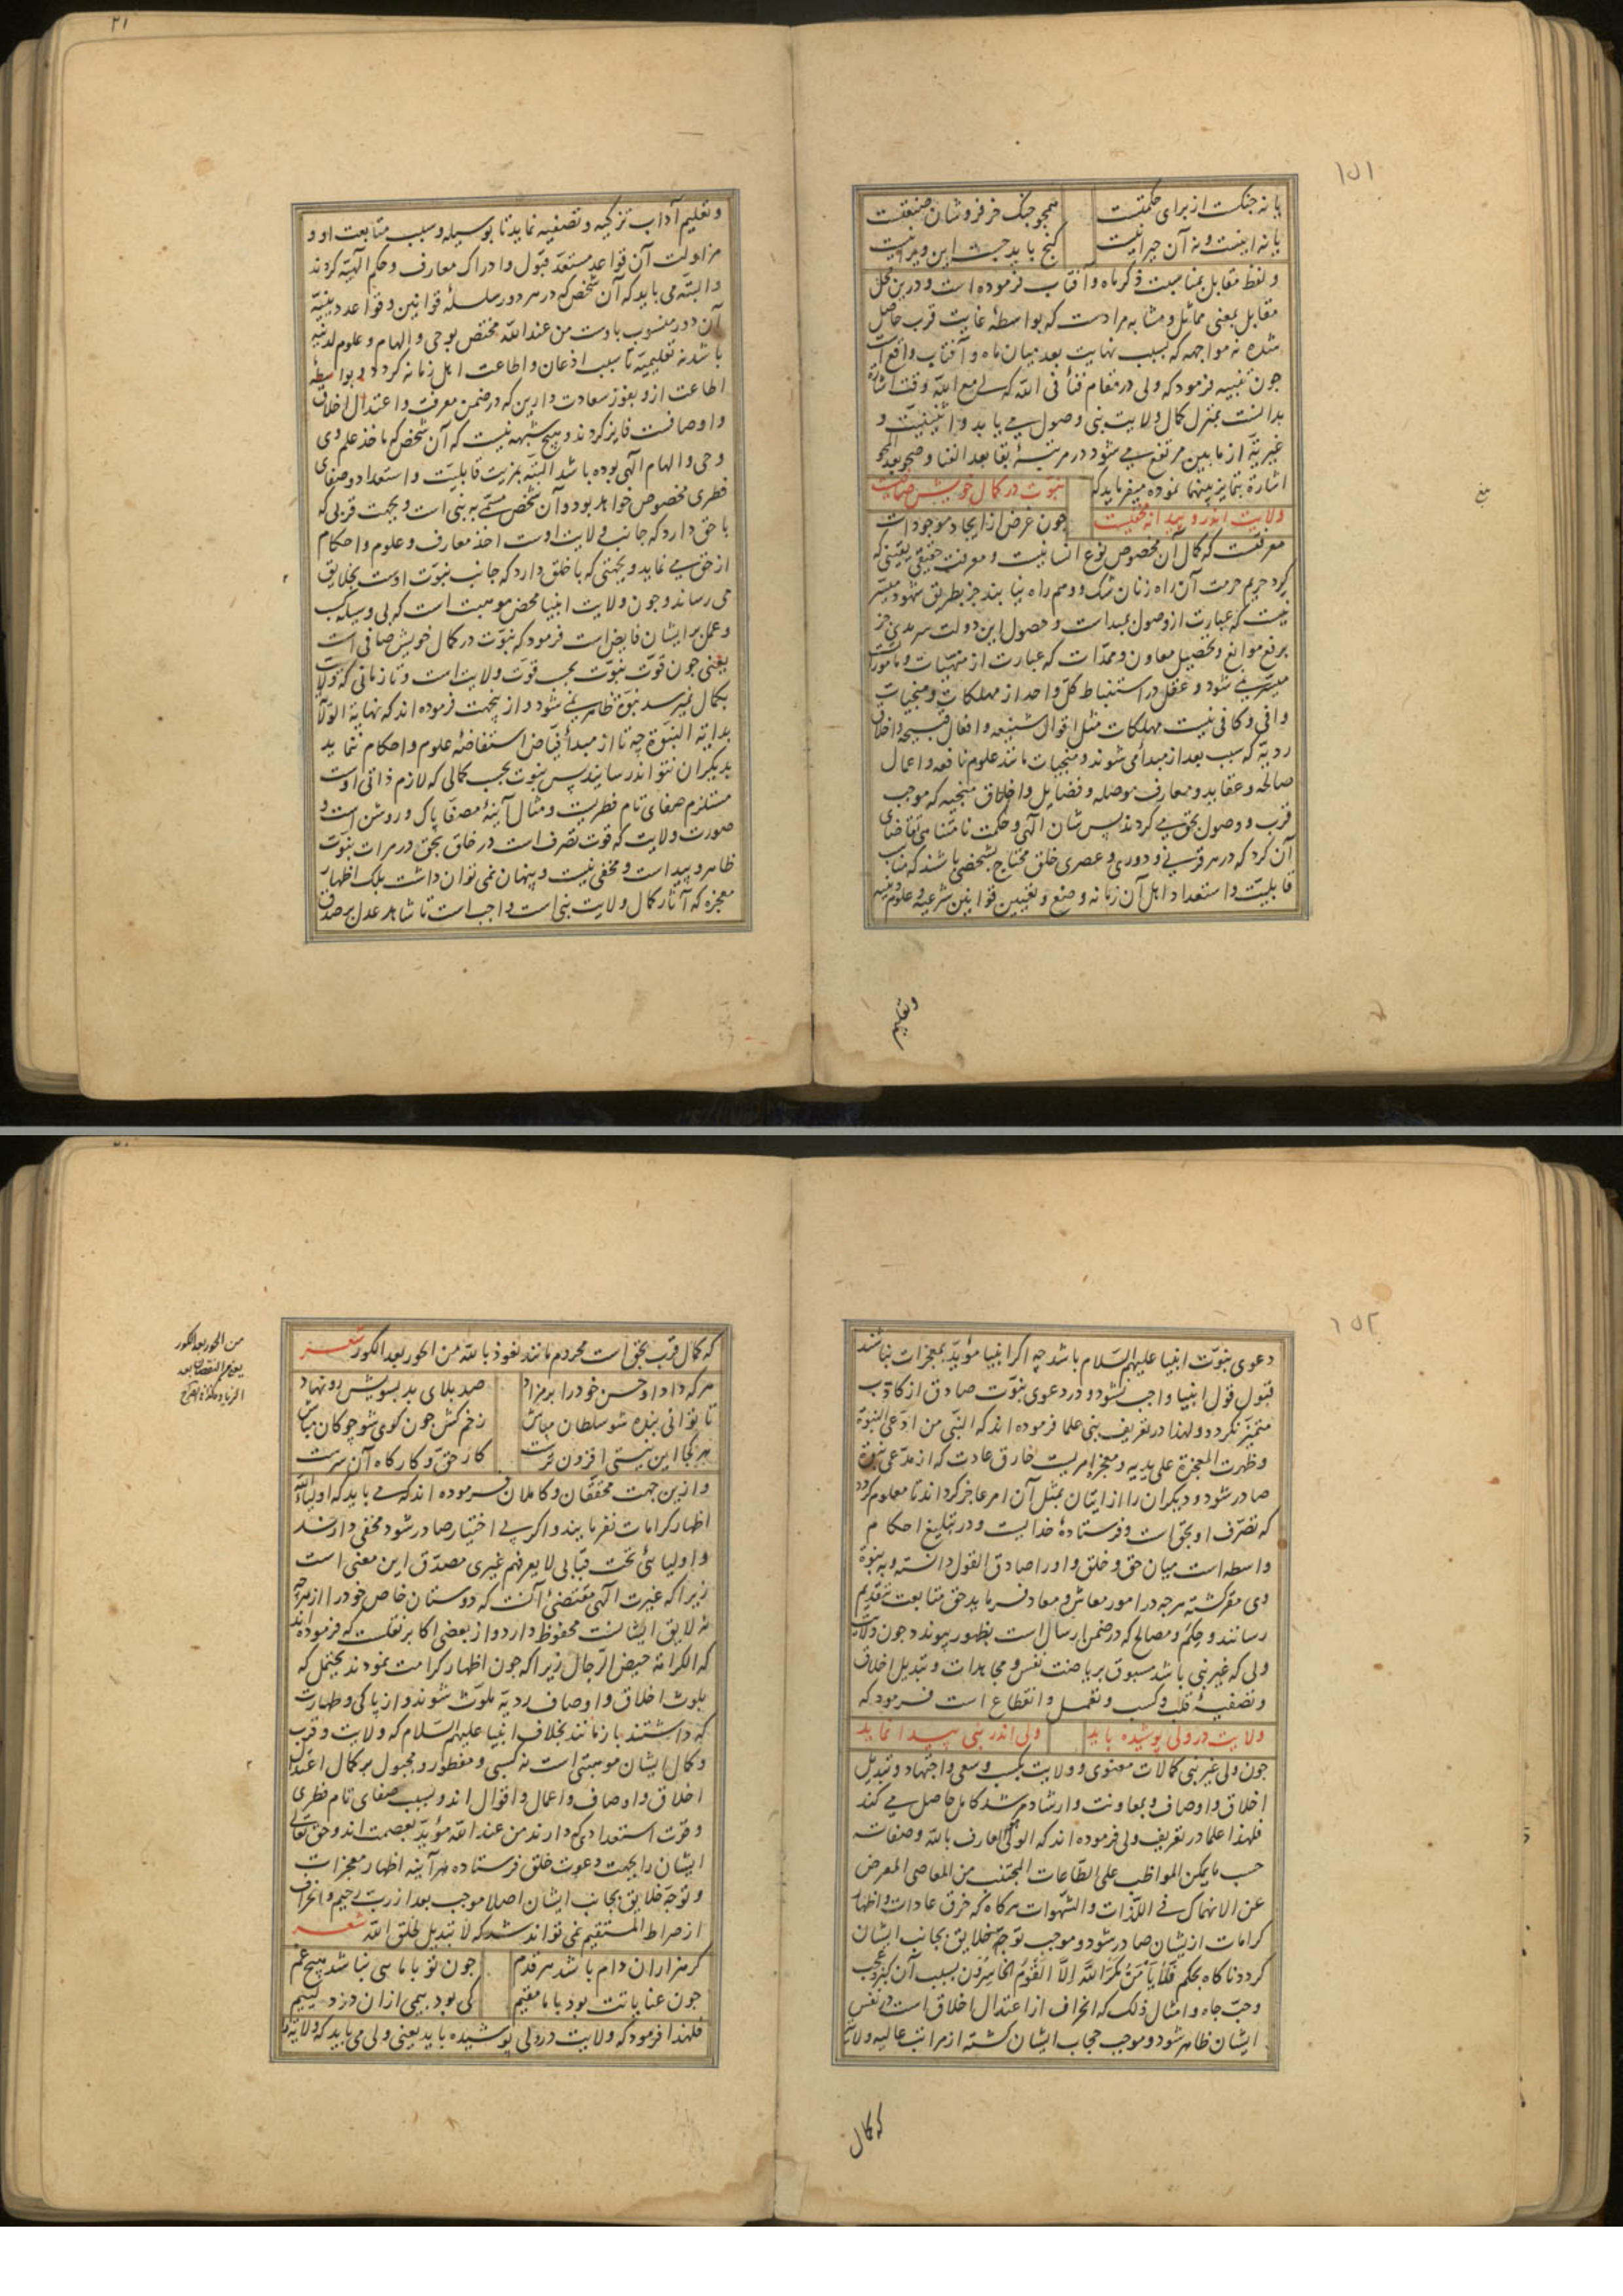 ۱۵۱
یا نه جنکست از برای حکمتست همجو جنک خر فروشان صنعتست
یا نه اینست و نه آن حیرانیست کنج باید جست این ویرانیست
و لفظ مقابل بمناسبت ذکر ماه و آفتاب فرموده است و درین محل
مقابل بمعنی مماثل و مشابه مرادست که بواسطهٔ غایت قرب حاصل
شده نه مواجهه که بسبب نهایت بعد میان ماه و آفتاب واقع است
جون تنبیه فرمود که ولی در مقام فنا فی الله که لی مع الله وقت اشارة
بدانست بمنزل کمال ولایت نبی وصول می یابد و اثنینیت و
غیریة از مابین مرتفع می شود در مرتبهٔ بقا بعد الفنا و صحو بعد المحو
اشارة بتمایز بینهما نموده میفرماید که نبوت در کمال خویش صافیست
ولایت اندرو پیدا نه مخفیست جون غرض از ایجاد موجودات
معرفتست که کمال آن مخصوص نوع انسانیست و معرفت حقیقی یقینی که
کرد حریم حرمت آن راه زنان شک و وهم راه نیابند جز بطریق شهود میسر
نیست که عبارت از وصول بمبداست و حصول این دولت سرمدی جز
برفع موانع و تحصیل معاون و ممدات که عبارت از منهیات و مامورات
میسر نمی شود و عقل در استنباط کل واحد از مهلکات و منجیات
وافی و کافی نیست مهلکات مثل اقوال شنیعه و افعال قبیحه و اخلاق
ردیه که سبب بعد از مبدأ می شوند و منجیات مانند علوم نافعه و اعمال
صالحه و عقاید و معارف موصله و فضایل و اخلاق منجیه که موجب
قرب و وصول بحق می کردند پس شان الهی و حکمت نامتناهی تقاضای
آن کرد که در هر قرنی و دوری و عصری خلق محتاج بشخصی باشند که مناسب
قابلیت و استعداد اهل آن زمانه وضع و تعیین قوانین شرعیه و علوم دینیه
وتعلیم
۲۱
و تعلیم آداب تزکیه و تصفیه نماید تا بوسیله و سبب متابعت او و
مزاولت آن قواعد مستعد قبول و ادراک معارف و حکم الهیه کردند
و البته می باید که آن شخص که در هر دور سلسلهٔ قوانین و قواعد دینیه
آن دور منسوب باوست من عند الله مختص بوحی و الهام و علوم لدنیه
باشد نه تعلیمیه تا سبب اذعان و اطاعت اهل زمانه کردد و بواسطه
اطاعت ازو بفوز سعادت دارین که در ضمن معرفت و اعتدال اخلاق
و اوصافست فایز کردند و هیچ شبهه نیست که آن شخص که ماخذ علم وی
وحی و الهام الهی بوده باشد البته بمزیت قابلیت و استعداد و صفای
فطری مخصوص خواهد بود و آن شخص مسمی به نبی است و بجهت قربی که
با حق دارد که جانب ولایت اوست اخذ معارف و علوم و احکام
از حق می نماید و بجهتی که با خلق دارد که جانب نبوت اوست بخلایق
می رساند و جون ولایت انبیا محض موهبت است که بی وسیله کسب
و عمل بر ایشان فایض است فرمود که نبوت در کمال خویش صافی است
یعنی جون قوت نبوت بحسب قوت ولایت است و تا زمانی که ولایت
بکمال نمیرسد نبوة ظاهر نمی شود و از ینجهت فرموده اند که نهایة الولایة
بدایة النبوة چه تا از مبدأ فیاض استفاضهٔ علوم و احکام ننماید
بدیکران نتواند رسانید پس نبوت بحسب کمالی که لازم ذاتی اوست
مستلزم صفای تام فطریست و مثال آینهٔ مصفا پاک و روشن است و
صورت ولایت که قوت تصرف است در خلق بحق در مرات نبوت
ظاهر و پیداست و مخفی نیست و پنهان نمی توان داشت بلک اظهار
معجزه که آثار کمال ولایت نبی است واجب است تا شاهد عدل بر صدق
۱۵۲
دعوی نبوت انبیا علیهم السلام باشد چه اکر انبیا مؤید بمعجزات نباشند
قبول قول انبیا واجب نشود و در دعوی نبوت صادق از کاذب
متمیز نکردد و لهذا در تعریف نبی علما فرموده اند که النبی من ادعی النبوة
و ظهرت المعجزة علی یدیه و معجزه امریست خارق عادت که از مدعی نبوة
صادر شود و دیکران را از اتیان بمثل آن امر عاجز کرداند تا معلوم کردد
که تصرف او بحق است و فرستادهٔ خدایست و در تبلیغ احکام
واسطه است میان حق و خلق و او را صادق القول دانسته و به نبوة
وی مقر کشته هر چه در امور معاش و معاد فرماید حق متابعت بتقدیم
رسانند و حکم و مصالح که در ضمن ارسال است بظهور پیوندد جون ولایت
ولی که غیر نبی باشد مسبوق بریاضت نفس و مجاهدات و تبدیل اخلاق
و تصفیهٔ قلب و کسب و تعمل و انقطاع است فرمود که
ولایت در ولی پوشیده باید ولی اندر نبی پیدا نماید
جون ولی غیر نبی کمالات معنوی و ولایت بکسب و سعی و اجتهاد و تبدیل
اخلاق و اوصاف و بمعاونت و ارشاد مرشد کامل حاصل می کند
فلهذا علما در تعریف ولی فرموده اند که الولی العارف بالله و صفاته
حسب ما یمکن المواظب علی الطاعات المجتنب من المعاصی المعرض
عن الانهماک فی اللذات و الشهوات هرکاه که خرق عادات و اظهار
کرامات ازیشان صادر شود و موجب توجه خلایق بجانب ایشان
کردد ناکاه بحکم فَلَا یَأْمَنُ مَکْرَ اللَّهِ اِلَّا الْقَوْمُ الخَاسِرُونَ بسبب آن کبر و عجب
و حب جاه و امثال ذلک که انحراف از اعتدال اخلاق است در نفس
ایشان ظاهر شود و موجب حجاب ایشان کشته از مراتب عالیه ولایة
که کمال
که کمال قرب بحق است محروم مانند نعوذ بالله من الحور بعد الکور شعر
هرکه داد او حسن خود را بر مزاد صد بلای بد بسویش رو نهاد
تا توانی بنده شو سلطان مباش زخم کش جون کوی شو چوکان مباش
هر کجا این نیستی افزون ترست کار حق و کارکاه آن سرست
و ازین جهت محققان و کاملان فرموده اند که می باید که اولیاءالله
اظهار کرامات نفرمایند و اکر بی اختیار صادر شود مخفی دارند
و اولیائی تحت قبابی لا یعرفهم غیری مصدق این معنی است
زیرا که غیرت الهی مقتضی آنست که دوستان خاص خود را از هرچه
نه لایق ایشانست محفوظ دارد و از بعضی اکابر نقلست که فرموده اند
که الکرامة حیض الرجال زیرا که جون اظهار کرامت نمودند یحتمل که
بلوث اخلاق و اوصاف ردیه ملوث شوند و از پاکی و طهارت
که داشتند باز مانند بخلاف انبیا علیهم السلام که ولایت و قرب
و کمال ایشان موهبتی است نه کسبی و مفطور و مجبول بر کمال اعتدال
اخلاق و اوصاف و اعمال و اقوال اند و بسبب صفای تام فطری
و قوت استعدادی که دارند من عند الله مؤید بعصمت اند و حق تعالی
ایشان را بجهت دعوت خلق فرستاده هر آینه اظهار معجزات
و توجه خلایق بجانب ایشان اصلا موجب بعد از رب رحیم و انحراف
از صراط المستقیم نمی تواند شد که لا تبدیل لخلق الله شعر
کر هزاران دام باشد هر قدم جون تو با مایی نباشد هیچ غم
جون عنایاتت بود با ما مقیم کی بود بیمی ازان دزد لئیم
فلهذا فرمود که ولایت در ولی پوشیده باید یعنی ولی می باید که ولایة
من الحور بعد الکور